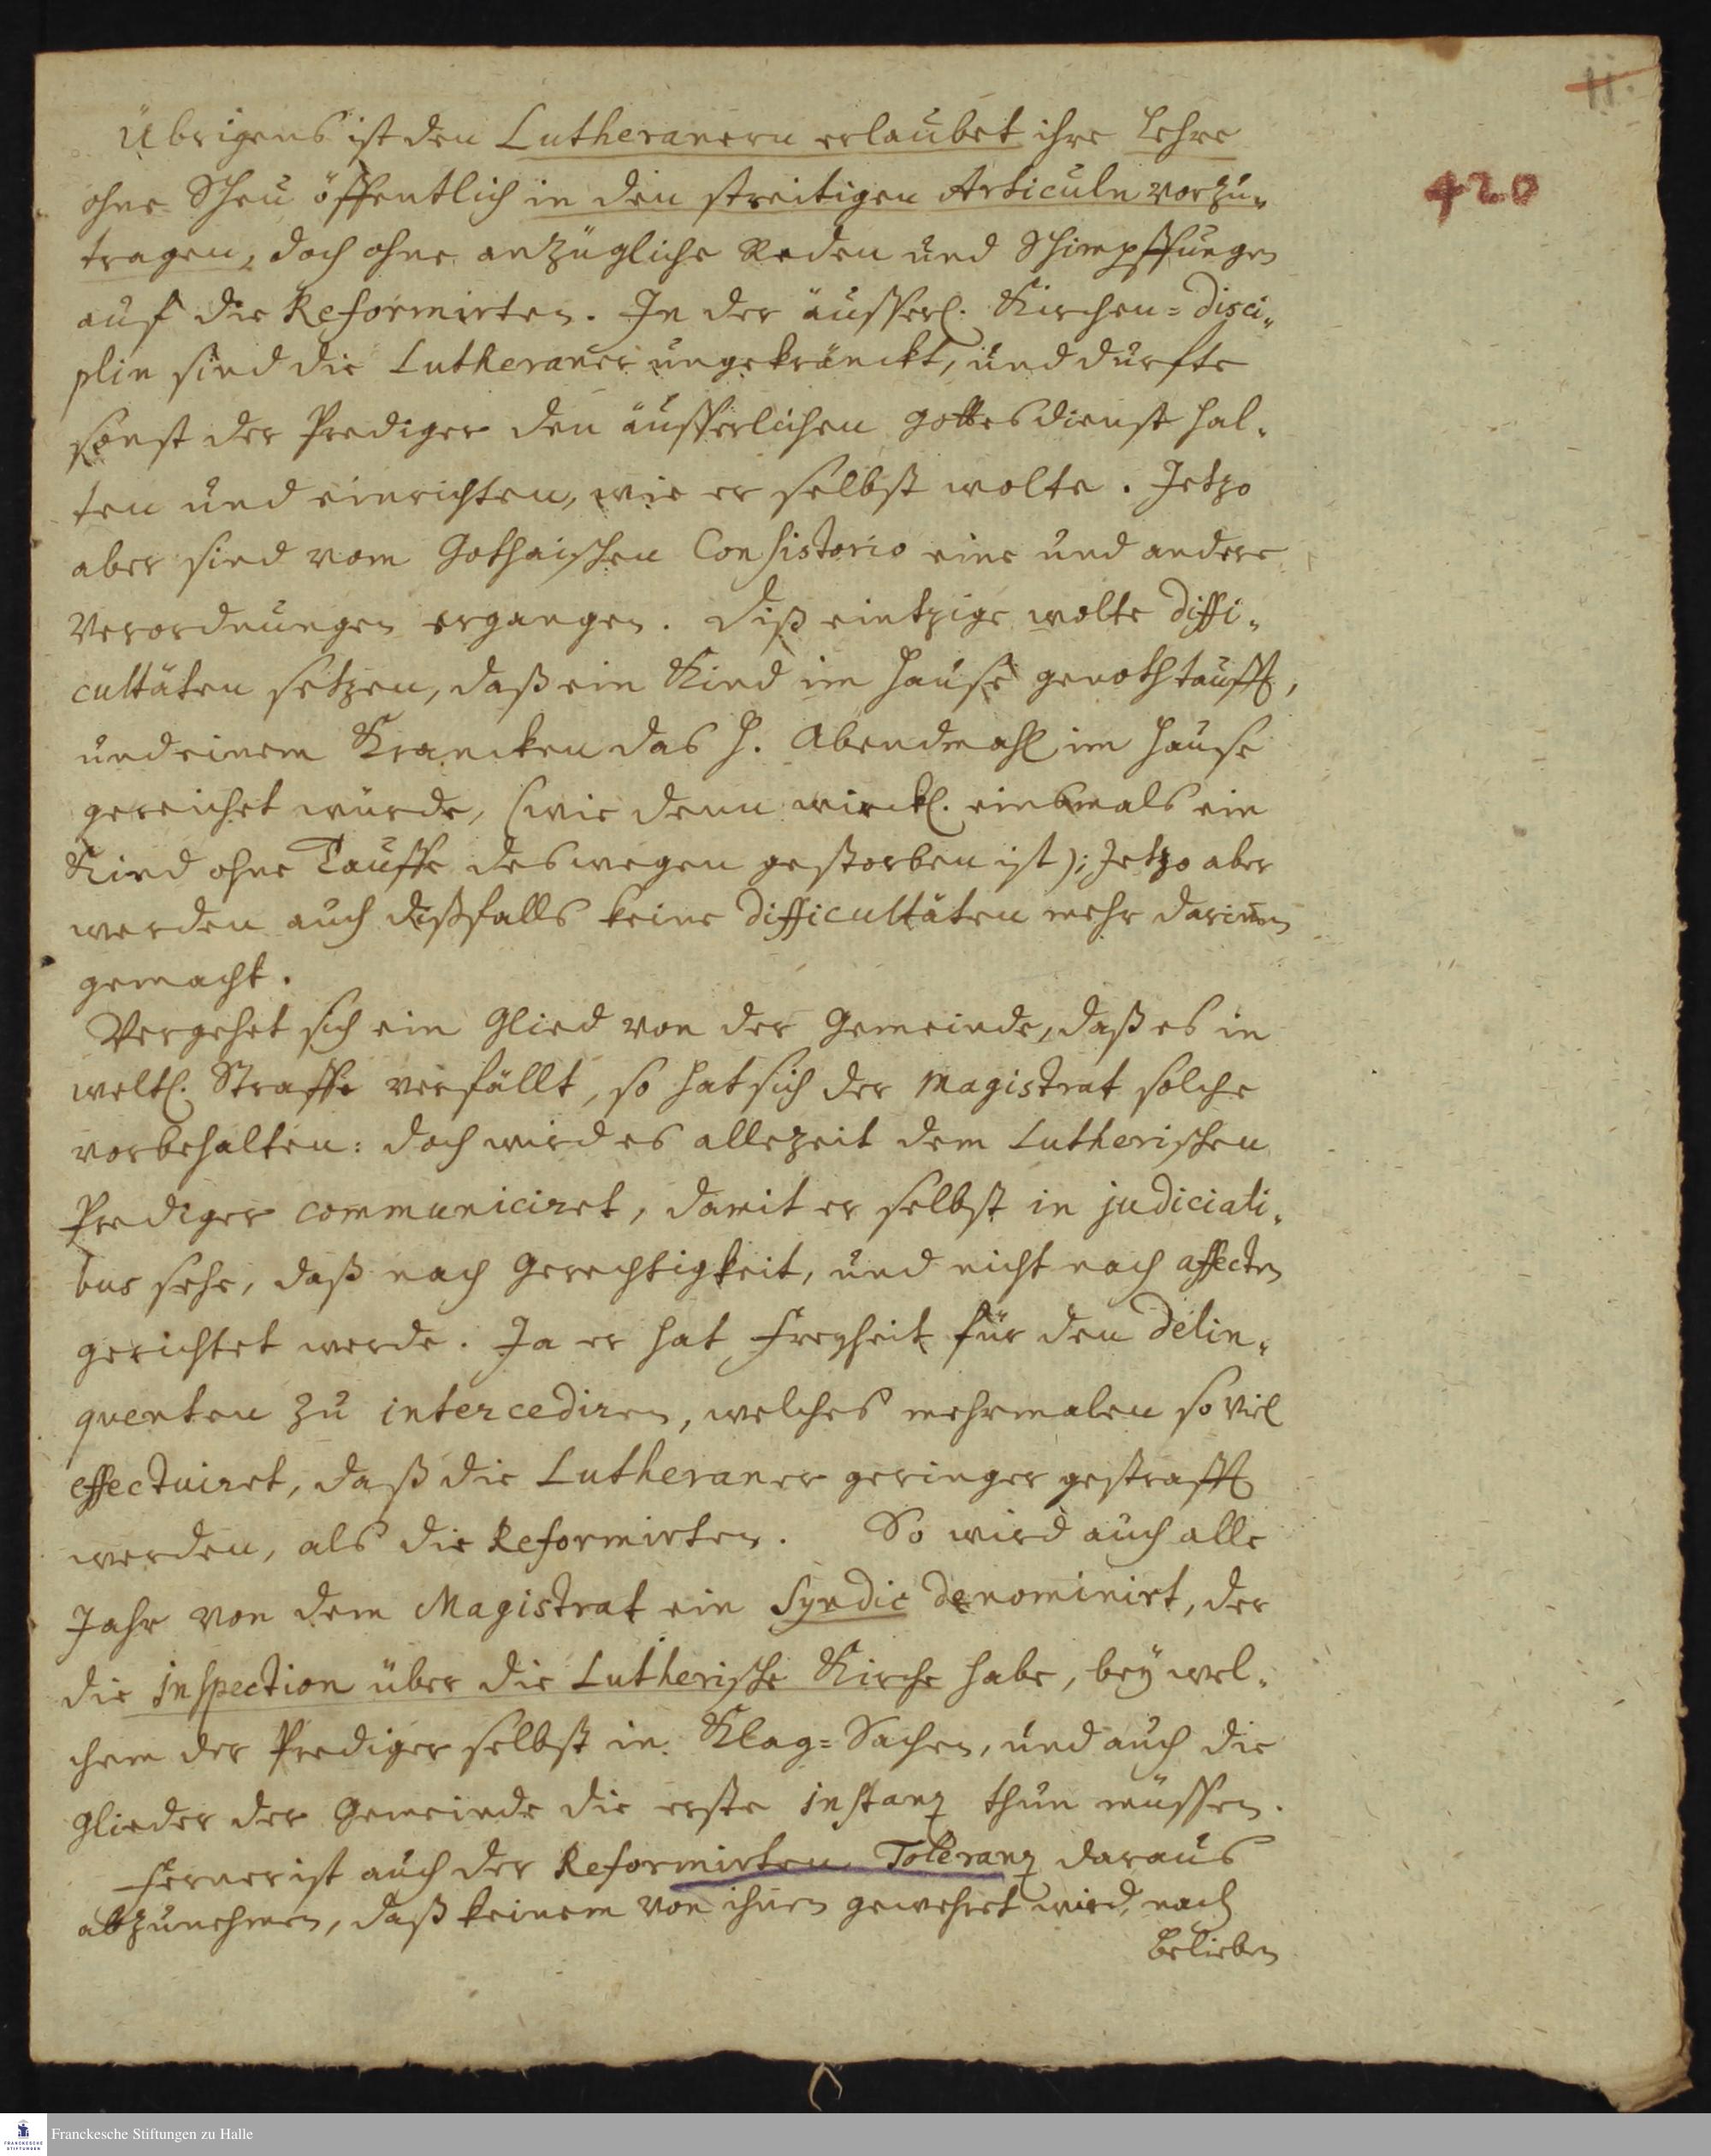 11.
420
Übrigens ist den Lutheranern erlaubet ihre Lehre
ohne Scheu öffentlich in den streitigen Articuln vorzu-
tragen, doch ohne anzügliche Reden und Schimpffungen
auf die Reformirten. In der äusserl. Kirchen=disci-
plin sind die Lutheraner ungekränckt, und durfte
sonst der Prediger den äusserlichen Gottesdienst hal-
ten und einrichten, wie er selbst wolte. Jetzo
aber sind vom Gothaischen Consistorio eine und andere
Verordnungen ergangen. Diß eintzige wolte diffi-
cultäten setzen, daß ein Kind im Hause genothtaufft,
und einem Krancken das H. Abendmahl im Hause
gereichet würde, (wie denn wirckl. einsmals ein
Kind ohne Tauffe deswegen gestorben ist); Jetzo aber
werden auch dißfalls keine difficultäten mehr darinnen
gemacht.
Vergehet sich ein Glied von der Gemeinde, daß es in
weltl. Straffe verfällt, so hat sich der Magistrat solche
vorbehalten: doch wird es allezeit dem Lutherischen
Prediger communiciret, damit er selbst in judiciali-
bus sehe, daß nach Gerechtigkeit, und nicht nach affecten
gerichtet werde. Ja er hat Freyheit für den delin-
quenten zu intercediren, welches mehrmalen so viel
effectuiret, daß die Lutheraner geringer gestrafft
werden, als die Reformirten. So wird auch alle
Jahr von dem Magistrat ein Syndic denominirt, der
die inspection über die Lutherische Kirche habe, bey wel-
chem der Prediger selbst in Klag=Sachen, und auch die
Glieder der Gemeinde die erste instanz thun müssen.
Ferner ist auch der Reformirten Toleranz daraus
abzunehmen, daß keinem von ihnen gewehret wird, nach
Belieben
Franckesche Stiftungen zu Halle